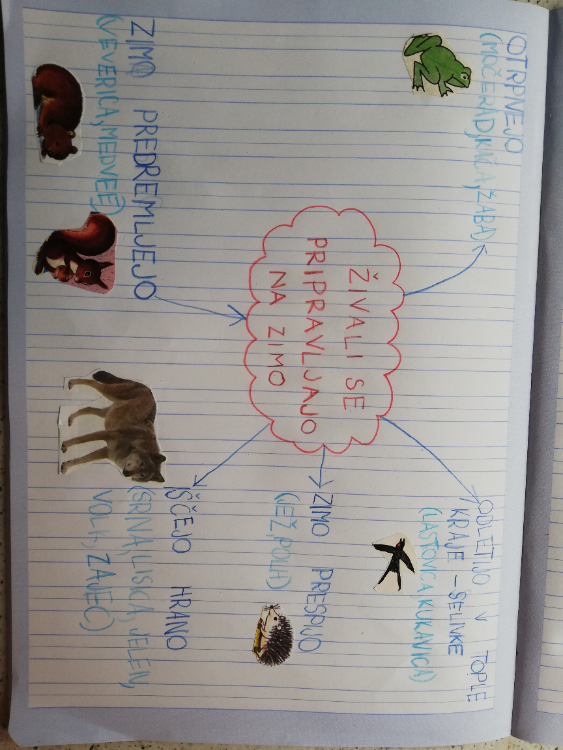 ŽIVALI SE
PRIPRAVLJAJO
NA ZIMO
OTRPNEJO
(MOČERAD, KAČA, ŽABA)
ODLETIJO V TOPLE
KRAJE - SELIVKE
(LASTOVICA, KUKAVICA)
ZIMO PRESPIJO
(JEŽ, POLH)
IŠČEJO HRANO
(SRNA, LISICA, JELEN,
VOLK, ZAJEC)
ZIMO PREDREMLJEJO
(VEVERICA, MEDVED)